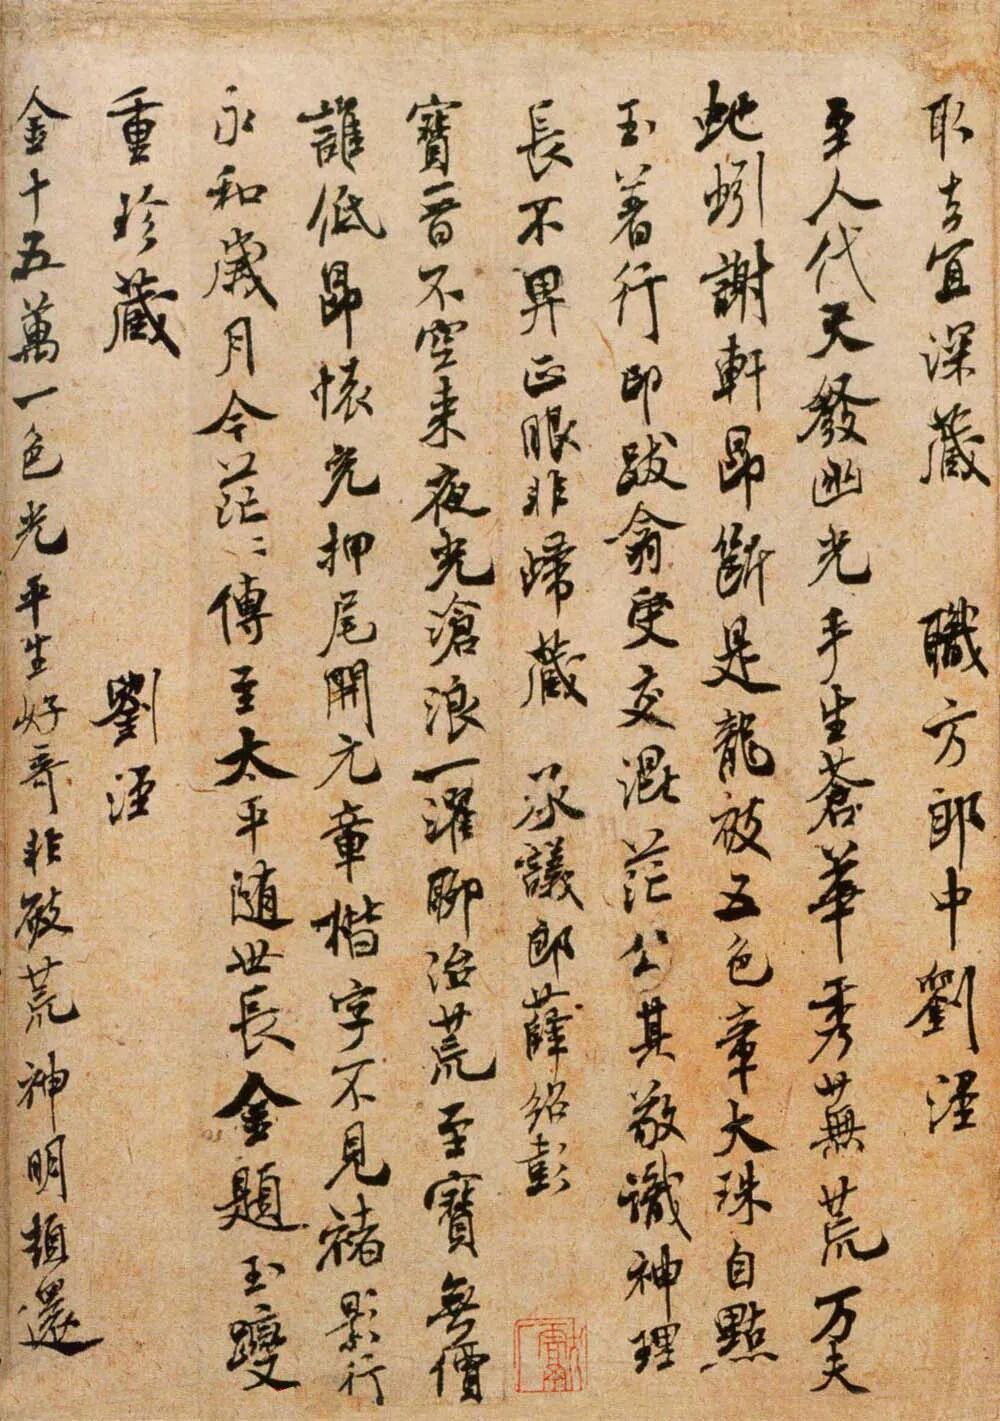 取去宜深藏 職方郎中劉涇
至人代天發幽光手生蒼華秀蕪荒万夫
蚍蚓謝軒昂斷是龍被五色章大珠自點
玉著行印跋翕更交混茫公其敬識神理
長不畀正眼非歸藏 承議郎薛紹彭
寶晉不空来夜光滄浪一濯聊治荒至寶無價
誰低昂懷充押尾開元章楷字不見褚影行
永和歲月今茫〻傳至太平隨世長金題玉躞
重珍藏 劉涇
金十五萬一色光平生好奇非破荒神明頓還